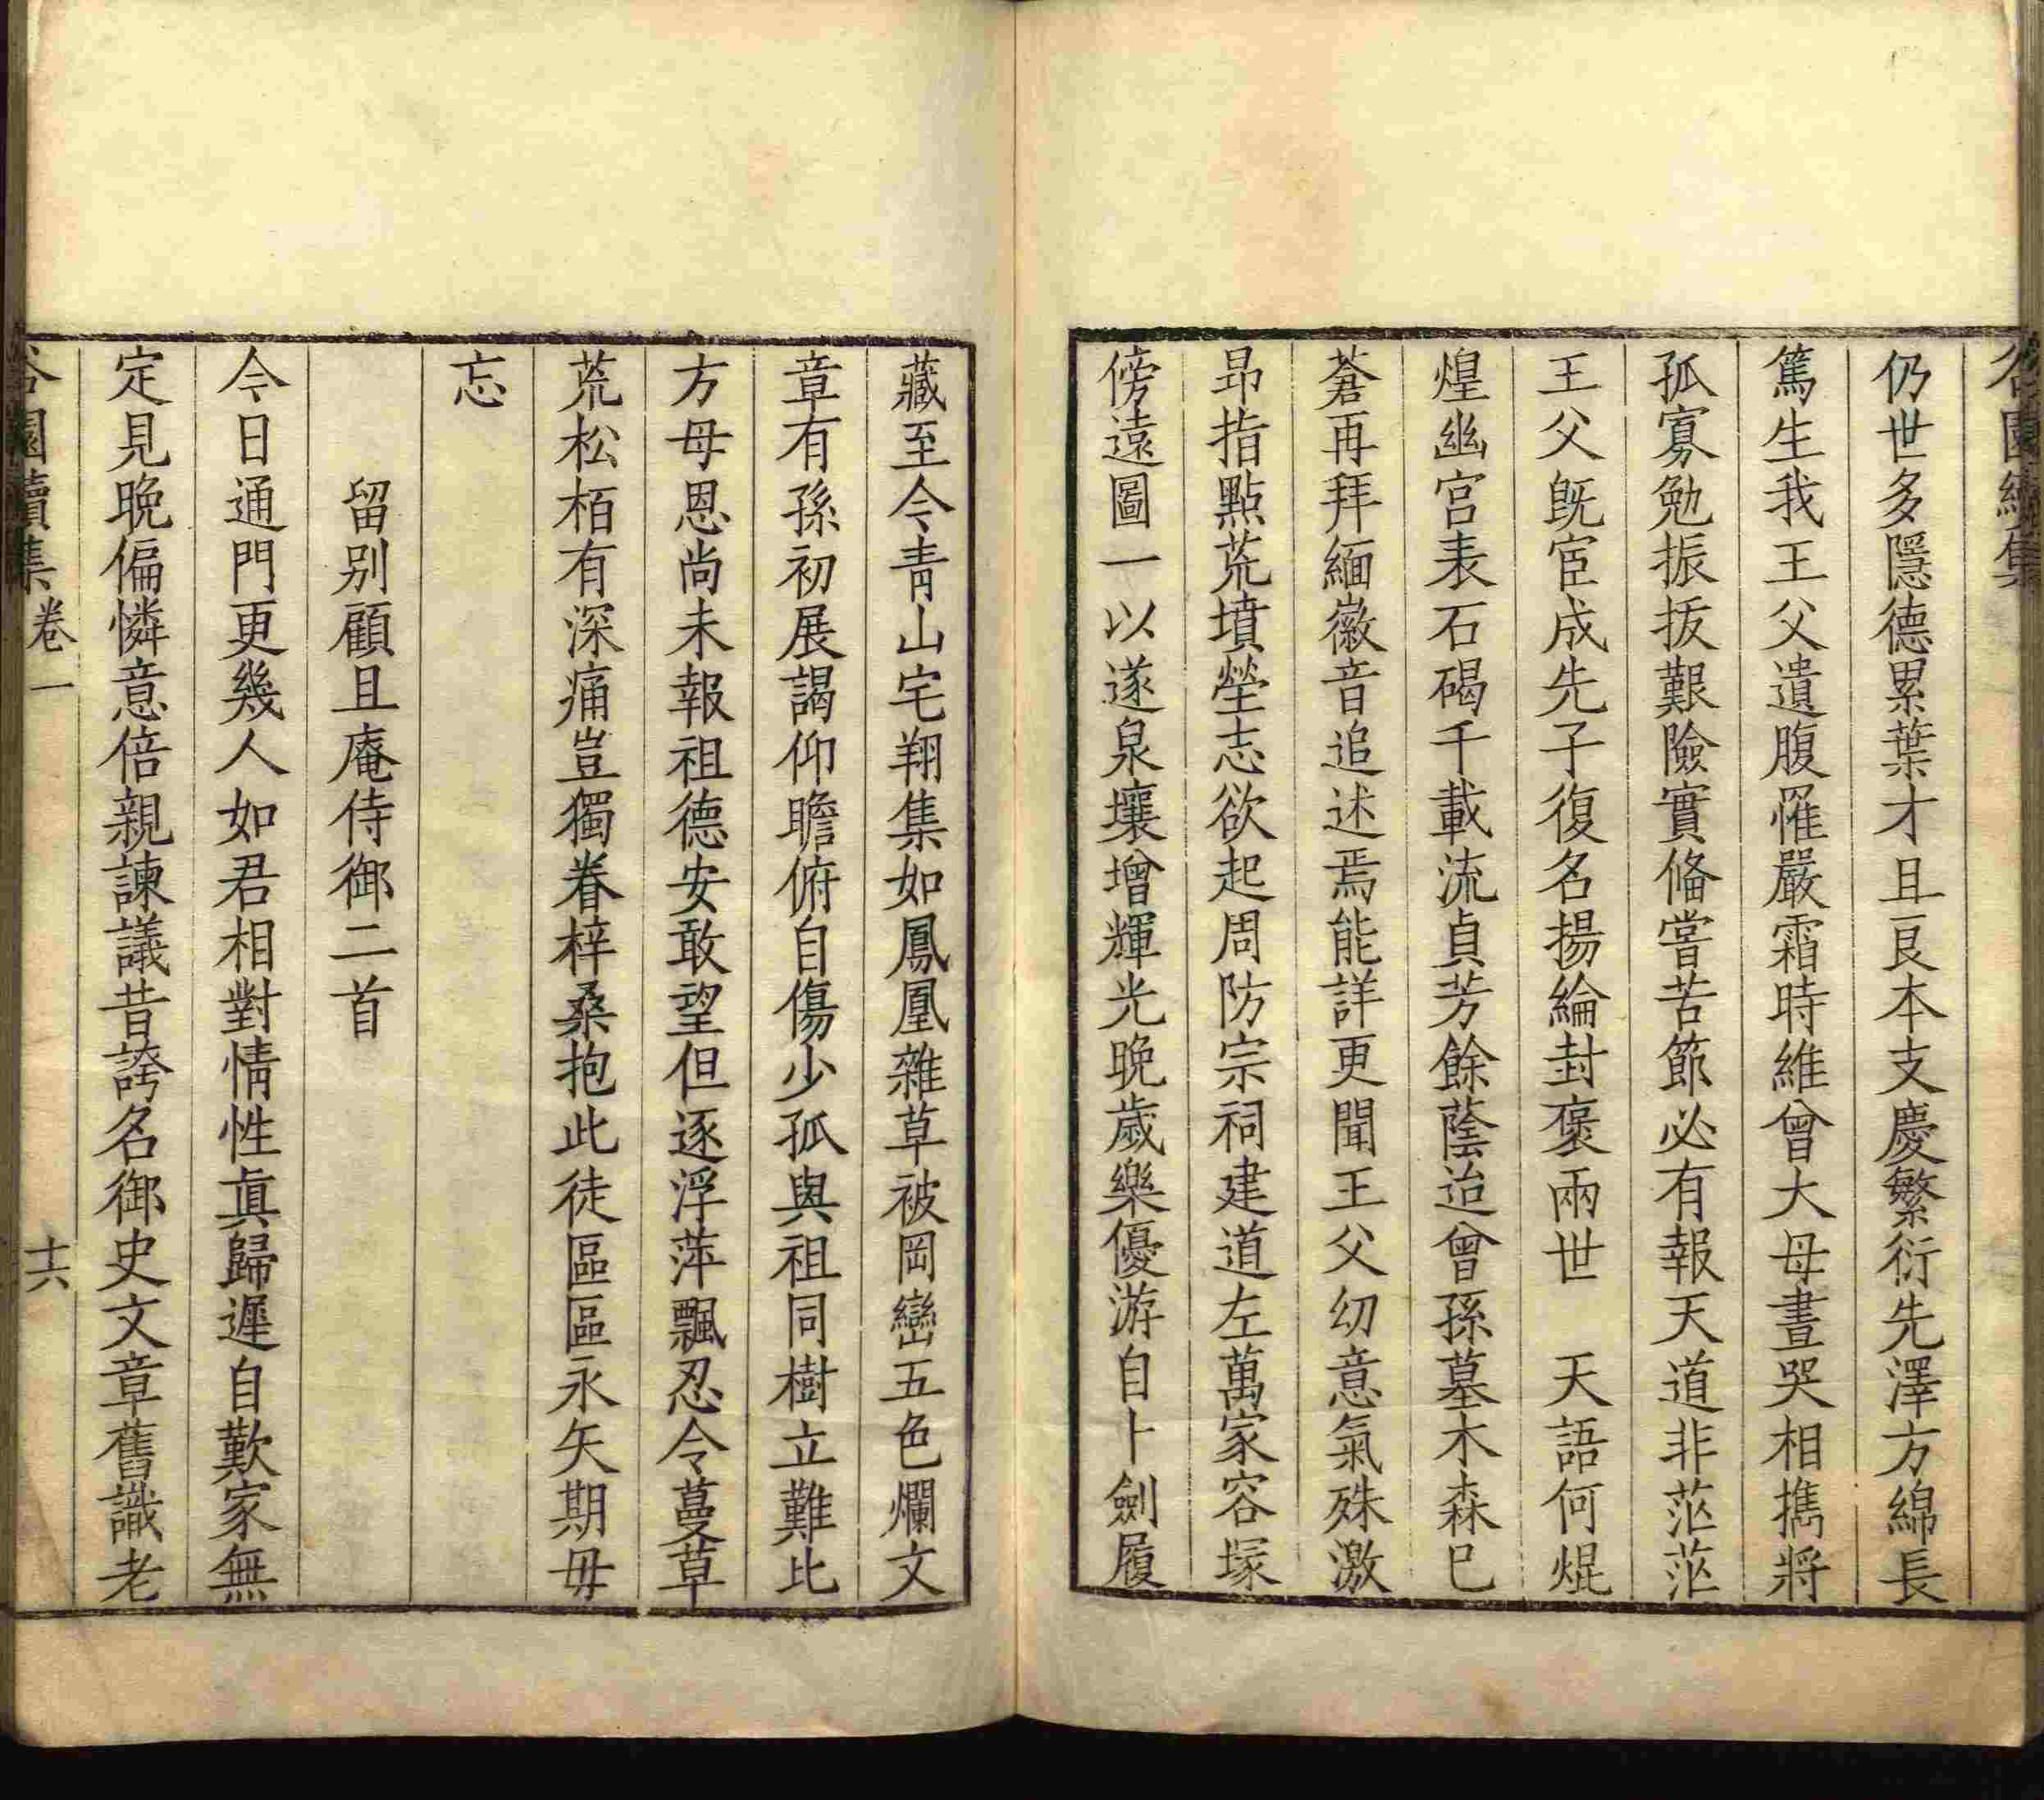 谷園續集
仍世多隱德累葉才且良本支慶繁衍先澤方綿長
篤生我王父遺腹罹嚴霜時維曾大母晝哭相攜將
孤寡勉振拔艱險實俻嘗苦節必有報天道非茫茫
王父旣宦成先子復名揚綸封褒兩世　天語何焜
煌幽宮表石碣千載流貞芳餘蔭迨曾孫墓木森已
蒼再拜緬徽音追述焉能詳更聞王父幼意氣殊激
昻指點荒墳塋志欲起周防宗祠建道左萬家容塚
傍遠圖一以遂泉壤增輝光晚歲樂優游自卜劍履
藏至今青山宅翔集如鳳凰雜草被岡巒五色爛文
章有孫初展謁仰瞻俯自傷少孤與祖同樹立難比
方母恩尚未報祖德安敢望但逐浮萍飄忍令蔓草
荒松栢有深痛豈獨眷梓桑抱此徒區區永矢期毋
忘
留别顧且庵侍御二首
今日通門更幾人如君相對情性眞歸遲自歎家無
定見晚偏憐意倍親諫議昔誇名御史文章舊識老
谷園續集　卷一　十六